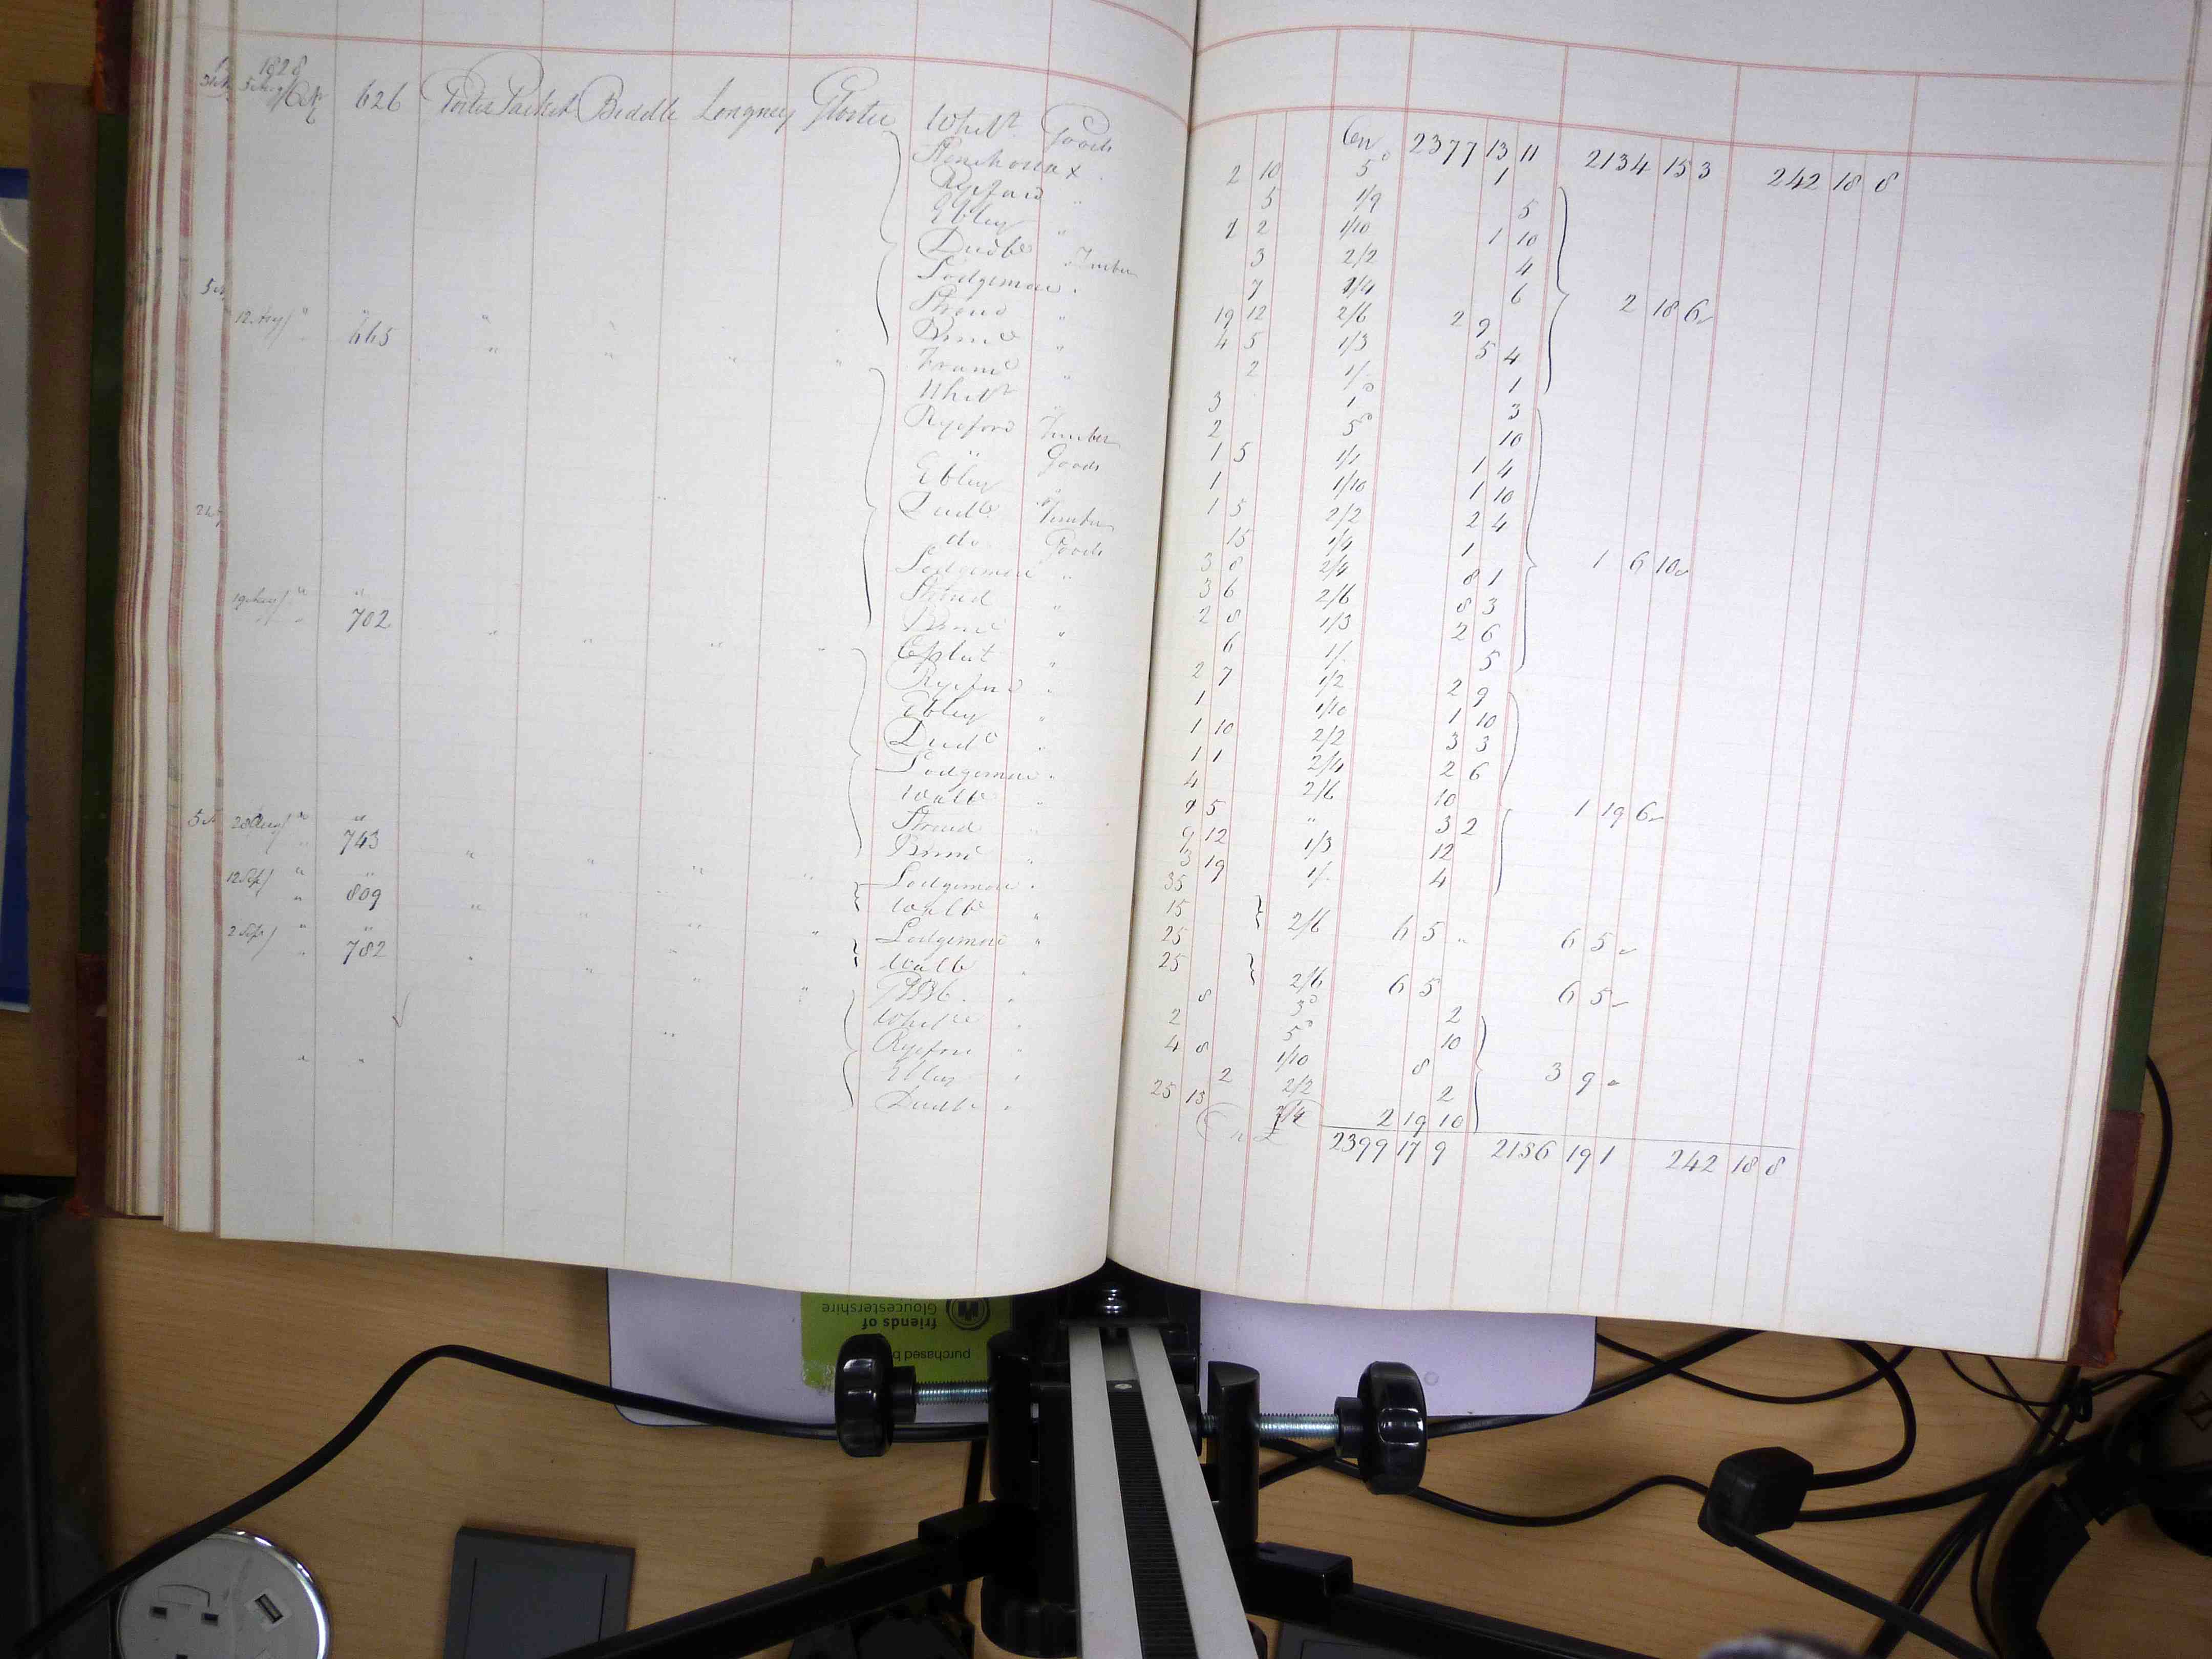 1828
626 Beddle Longney Gloster Whitr Goods Cn 2377 13 11 2134 15 3 242 18 8
2 10 5d 1
Ryeford " 5 1/9 5
Ebley " 2 1/10 1 10
Dudbe " Timber 3 2/2 4
Lodgemore " 7 6
Stroud " 19 12 2/6 2 9 2 18 6
Brimc " 4 5 1/3 5 4
12 Aug " 665 " " " " " Framc " 2 1/. 1
Whitr " 3 1d 3
Ryeford Timber 2 5d 10
" Goods 1 5 1/1 1 4
Ebley " 1 1/10 1 10
Dudbe Timber 1 5 2/2 2 4
do Goods 15 1/4 1
Lodgemore " 3 8 2/4 8 1 1 6 10
Stroud " 3 6 2/6 8 3
Brimc " 2 8 1/3 2 6
19 Aug " 702 " " " " 6 1/. 5
Ryeford " 2 7 1/2 2 9
Ebley " 1 1/10 1 10
Dudbe " 1 10 2/2 3 3
Lodgemore " 1 1 2/4 2 6
Wallb " 4 2/6 10
Stroud " 5 " 3 2 1 19 6
Brimc " 9 12 1/3 12
3 19 1/. 4
743 " " " " Lodgemore " 35
Wallb " 15 2/6 6 5 " 6 5
12 Sep " 809 " " " " Lodgemore " 25
Wallb " 25 2/6 6 5 6 5
2 Sep " 782 " " " " " 8 3d 2
Whitr " 2 5d 10
Ryeford " 4 8 1/10 8
Ebley " 2 2/2 2 3 9
Dudbe " 25 13 2/4 2 19 10
2399 17 9 2156 19 1 242 18 8
purchased b
friends of
Gloucestershire